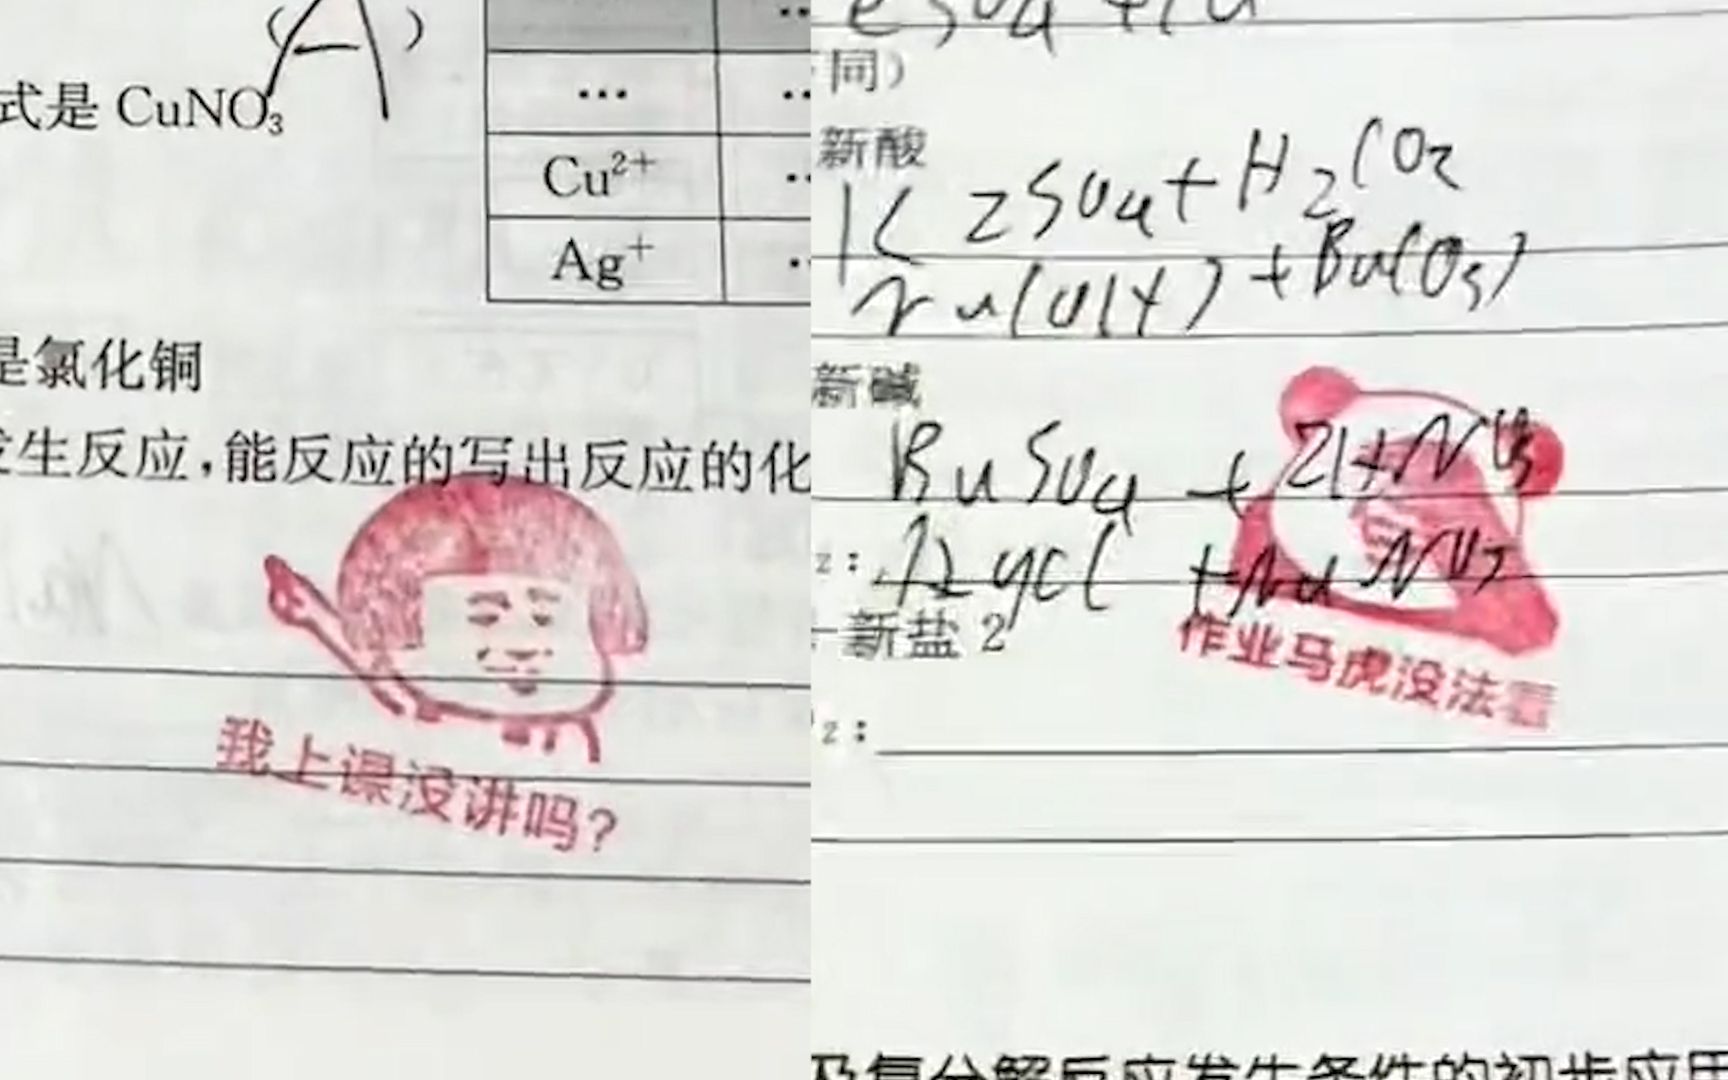 (A)
式是 CuNO₃
…
Cu²⁺
Ag⁺
是氯化铜
发生反应,能反应的写出反应的化
我上课没讲吗?
同)
新酸
K2SO4+H2CO2
新碱
BuSO4 + 2HNO3
AgCl +NaNO3
新盐 2
作业马虎没法看
2:
及复分解反应发生条件的初步应用